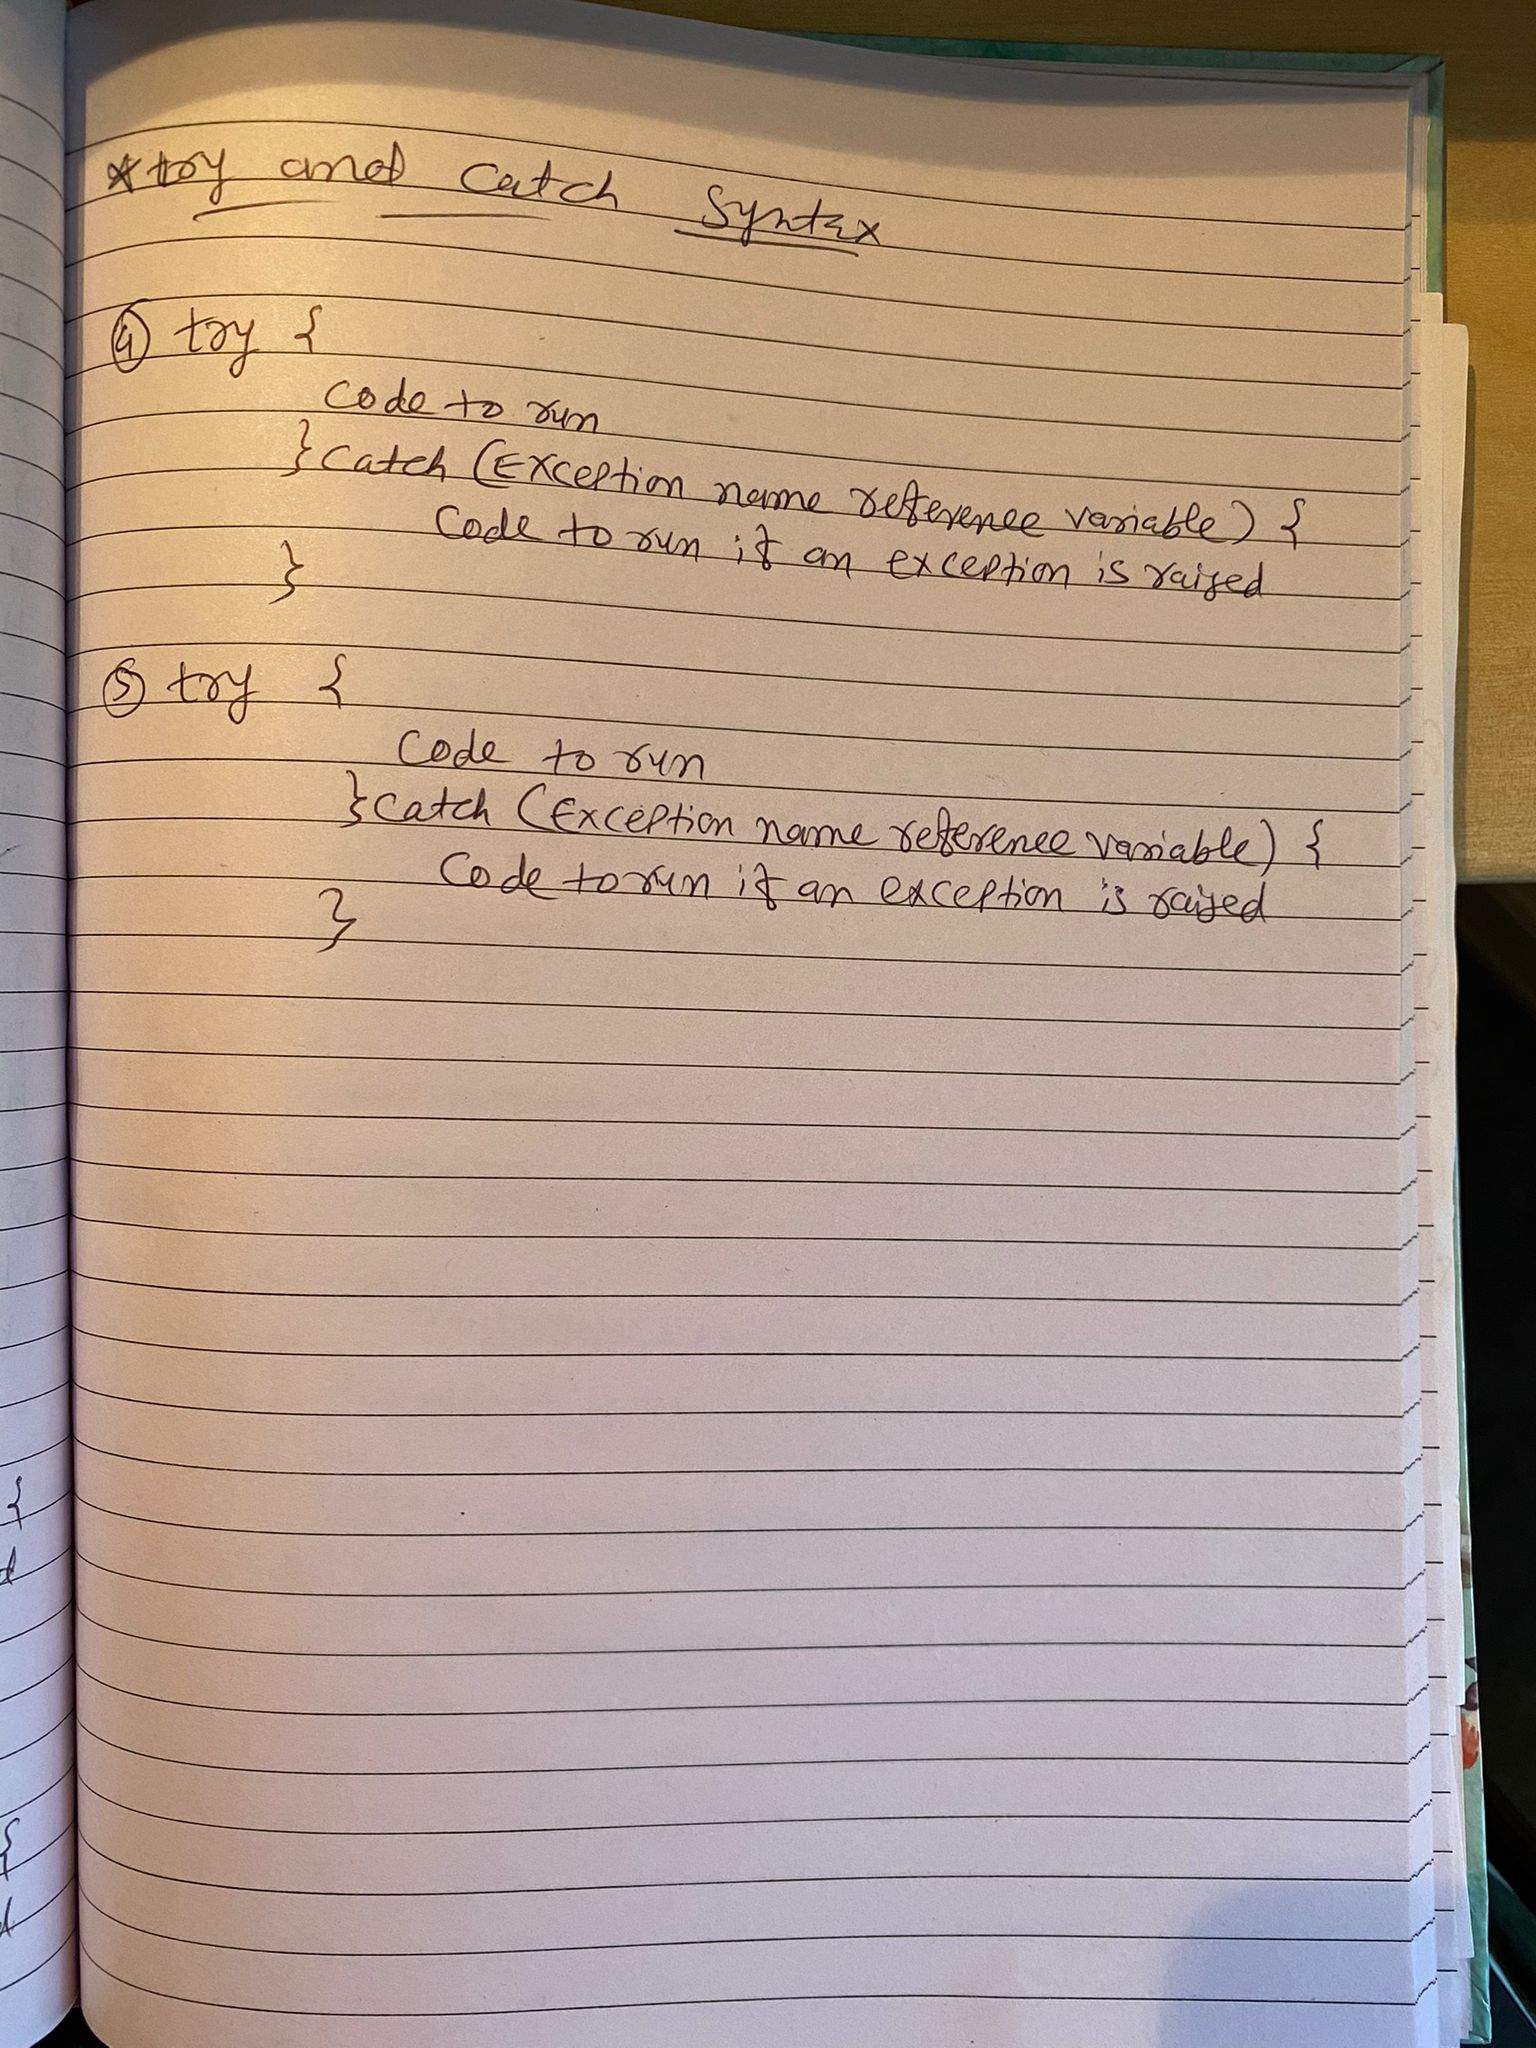 * try and catch Syntax
④ try {
code to run
} catch (Exception name reference variable) {
code to run if an exception is raised
}
⑤ try {
code to run
} catch (Exception name reference variable) {
code to run if an exception is raised
}
{
d
{
d